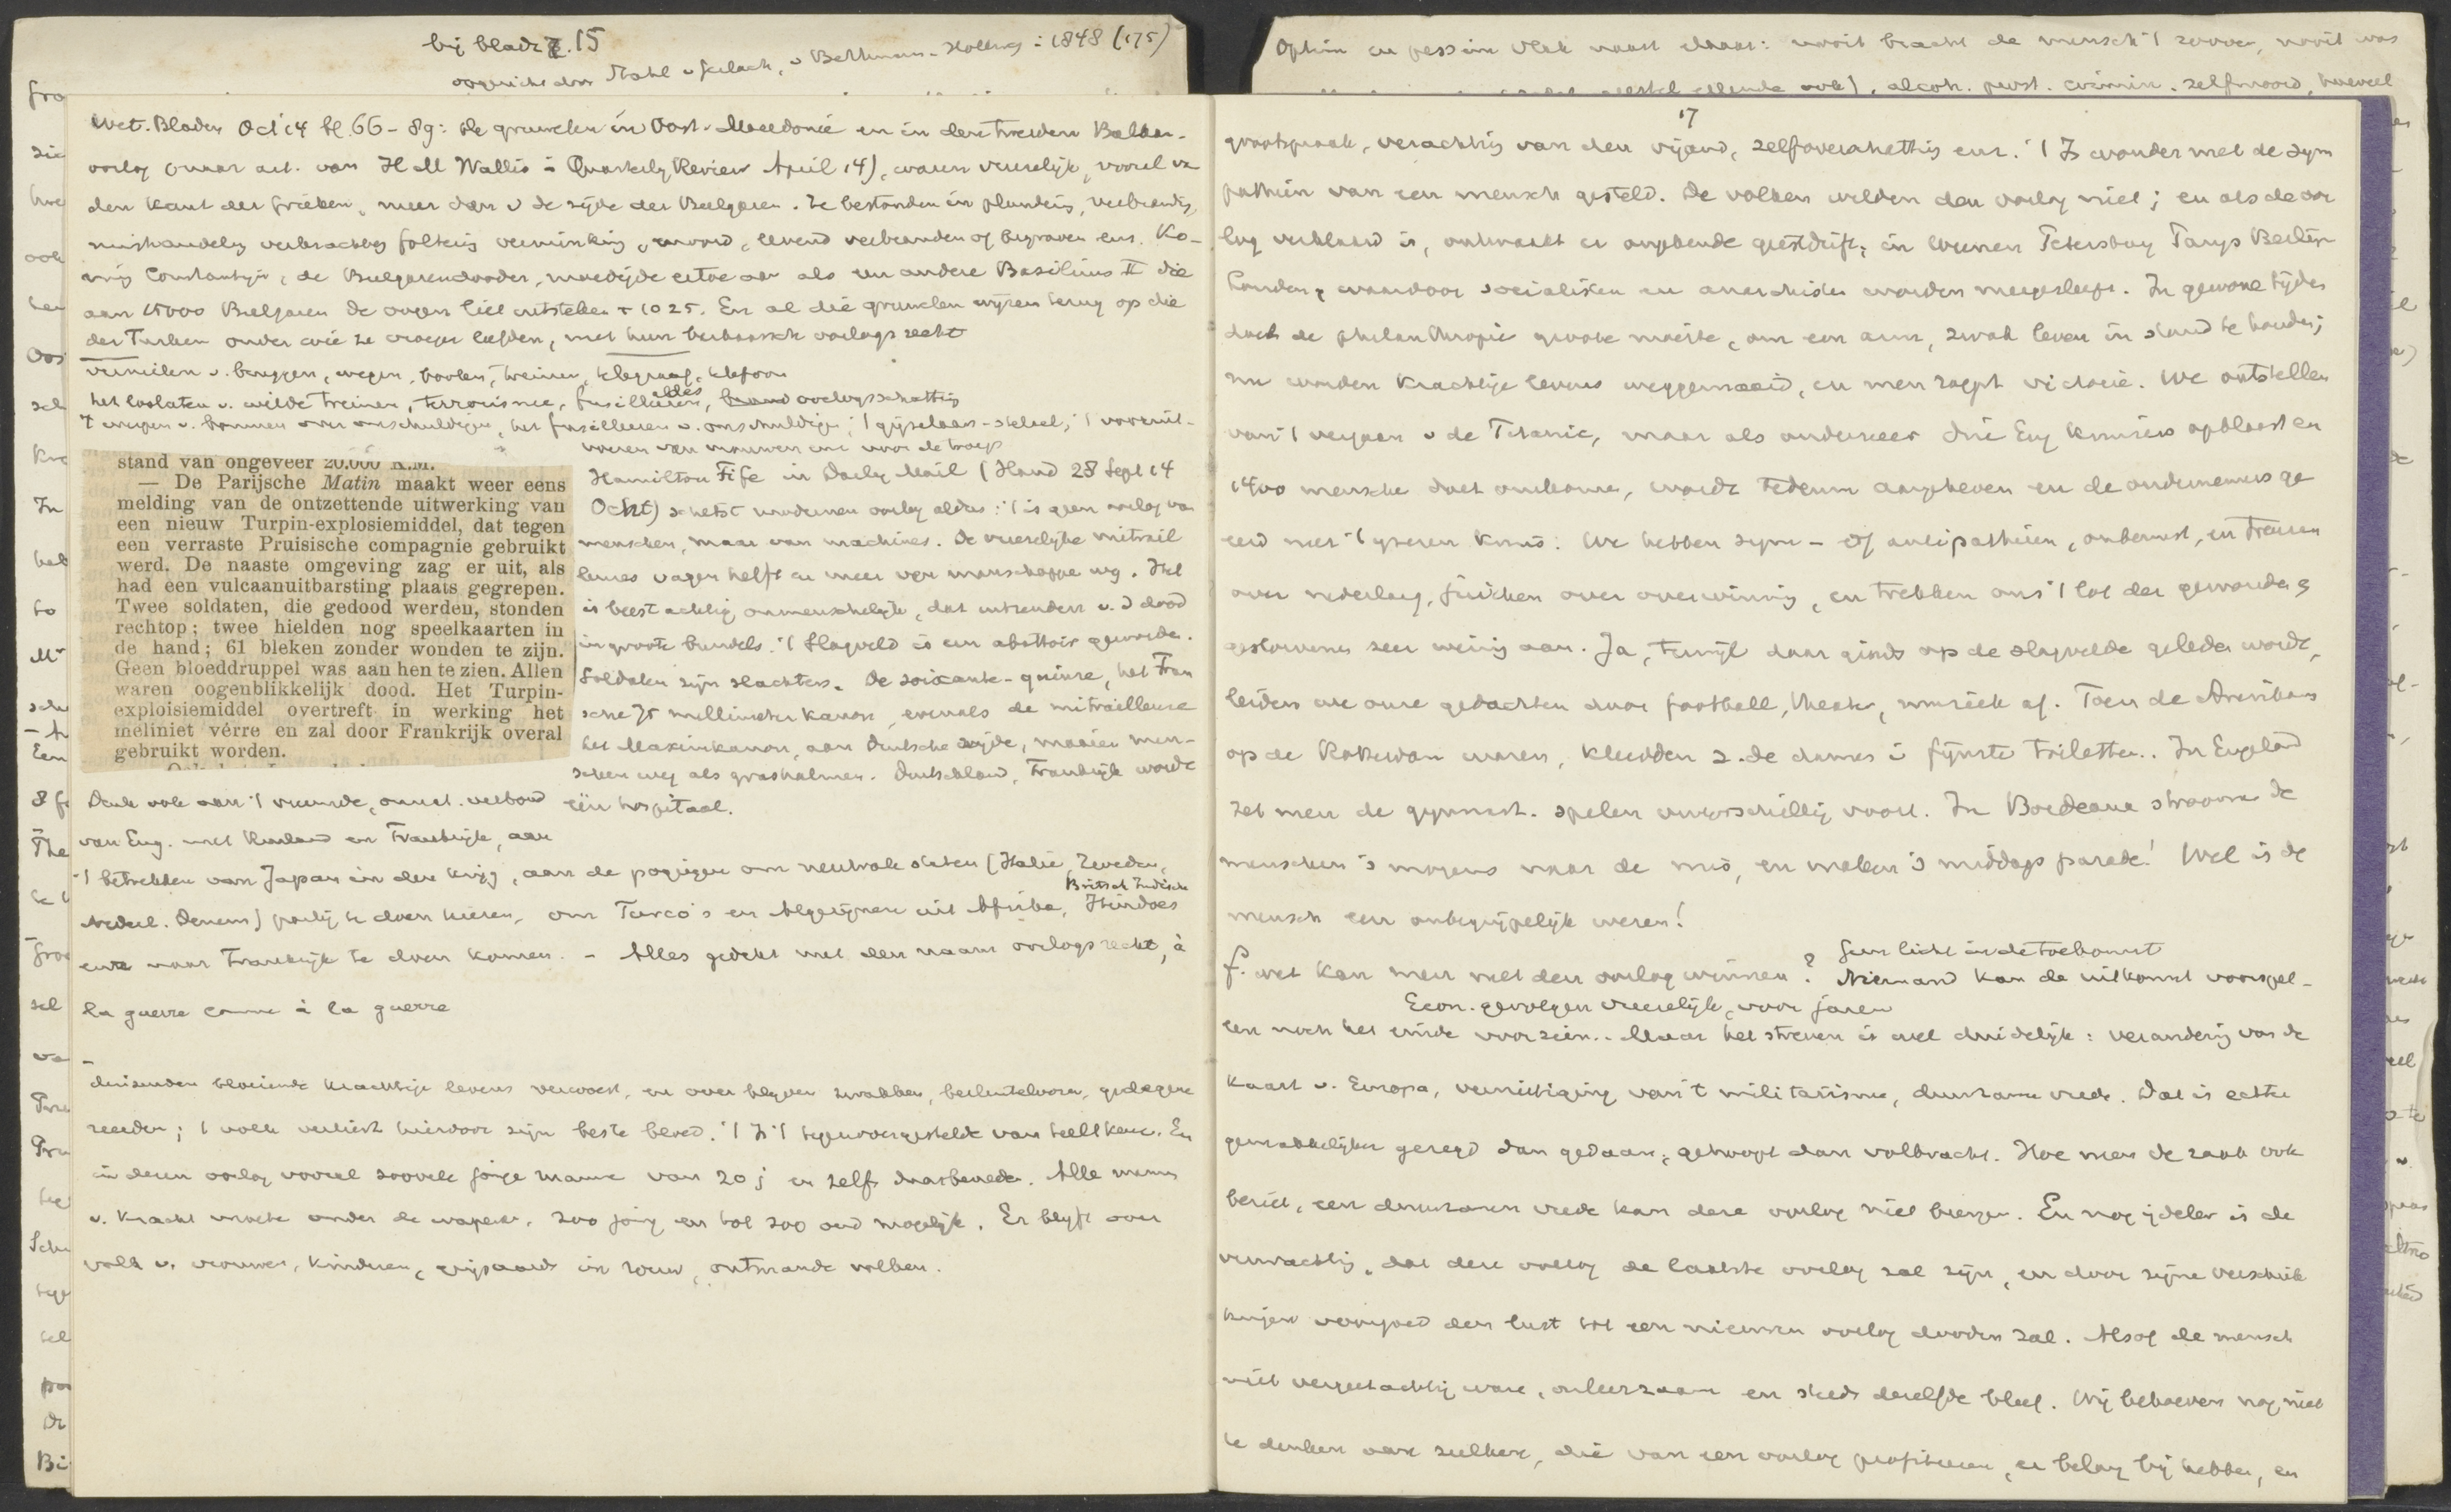 bij bladz. 15
v Bethmann-Hollweg : 1848 (175)
Wet. Bladen Oct '14 bl. 66-89: de gruwelen in Oost-Macedonië en in den tweeden Balkan-
oorlog (naar art. van Hall Wallis i Quarterly Review April 14), waren vreeselijk, vooral va
den kant der Grieken, meer dan v de zijde der Bulgaren. Ze bestonden in plundering, verbranding,
mishandeling verkrachting foltering verminking, moord, levend verbranden of begraven enz. Ko-
ning Constantijn, de Bulgarendooder, moedigde ertoe aan als een andere Basilius II die
aan 15000 Bulgaren de oogen liet uitsteken + 1025. En al die gruwelen wijzen terug op die
der Turken onder wie ze vroeger leefden, met hun barbaarsch oorlogsrecht
vernielen v. bruggen, wegen, booten, treinen, telegraaf, telefoon
het loslaten v. wilde treinen, terrorisme, fusilleeren, oorlogsschatting
't werpen v. bommen over onschuldigen, het fusilleeren v. onschuldigen; 't gijzelaars-stelsel; 't vooruit-
voeren van vrouwen enz voor de troep
stand van ongeveer 20.000 K.M.
— De Parijsche Matin maakt weer eens
melding van de ontzettende uitwerking van
een nieuw Turpin-explosiemiddel, dat tegen
een verraste Pruisische compagnie gebruikt
werd. De naaste omgeving zag er uit, als
had een vulcaanuitbarsting plaats gegrepen.
Twee soldaten, die gedood werden, stonden
rechtop; twee hielden nog speelkaarten in
de hand; 61 bleken zonder wonden te zijn.
Geen bloeddruppel was aan hen te zien. Allen
waren oogenblikkelijk dood. Het Turpin-
exploisiemiddel overtreft in werking het
meliniet vérre en zal door Frankrijk overal
gebruikt worden.
Hamilton Fife in Daily Mail (Stand 28 Sept 14
Ocht) schetst modernen oorlog aldus: 't is geen oorlog van
menschen, maar van machines. De vreeselijke mitrail
leuses vagen helft en meer van manschappe weg. Het
is beestachtig onmenschelijk, dat uitzenden v. d dood
in groote bundels. 't Slagveld is een abattoir geworden.
Soldaten zijn slachters. De soixante-quinze, het Fran
sche 75 millimeter kanon, evenals de mitrailleuse
het Maximkanon, aan Duitsche zijde, maaien men-
schen weg als grashalmen. Duitschland, Frankrijk wordt
één hospitaal.
Denk ook aan 't vreemde, onnat. verbond
van Eng. met Rusland en Frankrijk, aan
't betrekken van Japan in den krijg, aan de pogingen om neutrale staten (Italië, Zweden,
Nederl. Denem) partij te doen kiezen, om Turco's en Algerijnen uit Afrika, Britsch Indische Hindoes
enz naar Frankrijk te doen komen. - Alles gedekt met den naam oorlogsrecht, à
la guerre comme à la guerre
duizenden bloeiende krachtige levens verwoest, en over blijven zwakken,
't volk verliest hierdoor zijn beste bloed. 't Is 't tegenovergestelde van teeltkeuze. En
in dezen oorlog vooral zoovele jonge manne van 20 j en zelfs daarbeneden. Alle mannen
v. kracht moete onder de wapens, zoo jong en tot zoo oud mogelijk. Er blijft over
volk v. vrouwen, kinderen, grijsaards in rouw, ontmande volken.
Optim en pessim vlak naast elkaar: nooit bracht de mensch 't zoover, nooit was
alcoh. prost. crimin. zelfmoord, hoeveel
17
grootspraak, verachting van den vijand, zelfoverschatting enz. 't Is wonder met de sym
pathieën van een mensch gesteld. De volken wilden den oorlog niet; en als de oor
log verklaard is, ontwaakt er ongekende geestdrift, in Weenen Petersburg Parijs Berlijn
Londen, waardoor socialisten en anarchisten worden meegesleept. In gewone tijden
doet de philanthropie groote moeite, om een arm, zwak leven in stand te houden;
nu worden krachtige levens weggemaaid, en men roept victorie. We ontstellen
van 't vergaan v de Titanic, maar als onderzeeër drie Eng kruisers opblaast en
1400 mensche doet omkomen, wordt Tedeum aangeheven en de ondernemers ge
eerd met 't ijzeren kruis: We hebben sym- of antipathieën, onbewust, en treuren
over nederlaag, juichen over overwinning, en trekken ons 't lot der gewonden &
gestorvenen zeer weinig aan. Ja, terwijl daar ginds op de slagvelde geleden wordt,
leiden we onze gedachten door football, theater, muziek af. Toen de Amerikaans
op de Rotterdam waren, kleedden z. de dames i fijnste toiletten.. In Engeland
zet men de gymnast. spelen onverschillig voort. In Bordeaux stroomen de
menschen 's morgens naar de mis, en maken 's middags parade! Wel is de
mensch een onbegrijpelijk wezen!
Geen licht in de toekomst
f. wat kan men met den oorlog winnen? Niemand kan de uitkomst voorspel-
Econ. gevolgen vreeselijk, voor jaren
len noch het einde voorzien.. Maar het streven is wel duidelijk: verandering van de
kaart v. Europa, vernietiging van 't militarisme, duurzame vrede. Dat is echter
gemakkelijker gezegd dan gedaan, gehoopt dan volbracht. Hoe men de zaak ook
beziet, een duurzamen vrede kan deze oorlog niet brengen. En nog ijdeler is de
verwachting, dat deze oorlog de laatste oorlog zal zijn, en door zijne verschrik
kingen voorgoed den lust tot een nieuwen oorlog dooden zal. Alsof de mensch
niet vergeetachtig ware, onleerzaam en steeds dezelfde bleef. Wij behoeven nog niet
te denken aan zulken, die van een oorlog profiteeren, er belang bij hebben, en